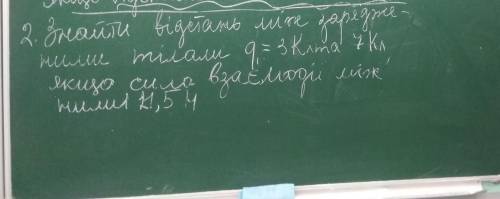 2. Знайти відстань між зарядже-
ними тілами q₁ = 3 Кл та 7 Кл
якщо сила взаємодії між
ними 21,5 Н